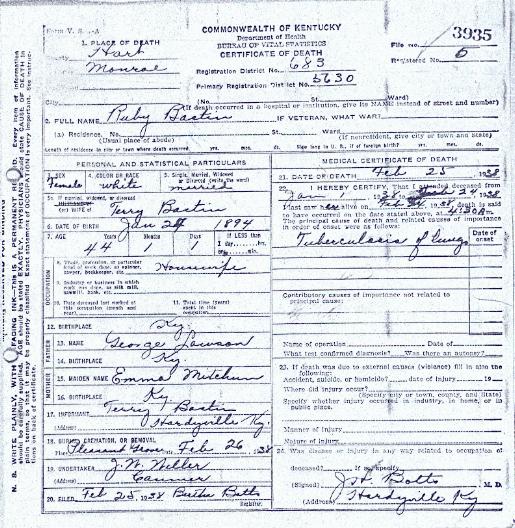 Form V. S.
COMMONWEALTH OF KENTUCKY
Department of Health
BUREAU OF VITAL STATISTICS
CERTIFICATE OF DEATH
File No. 3935
Registered No. 6
1. PLACE OF DEATH
Hart
Monroe
Registration District No. 685
Primary Registration District No. 5630
City
(No. St. Ward)
(If death occurred in a hospital or institution, give its NAME instead of street and number)
2. FULL NAME Ruby Bastin IF VETERAN, WHAT WAR?
(a) Residence, No. St. Ward
(Usual place of abode) (If nonresident, give city or town and State)
Length of residence in city or town where death occurred yrs. mos. ds. How long in U. S., if of foreign birth? yrs. mos. ds.
PERSONAL AND STATISTICAL PARTICULARS
3. SEX Female
4. COLOR OR RACE white
5. Single, Married, Widowed or Divorced (write the word) married
5a. If married, widowed, or divorced
(or) WIFE of Terry Bastin
6. DATE OF BIRTH Jan 24 1894
7. AGE Years Months Days If LESS than
44 1 1 1 day, hrs.
or min.
OCCUPATION
8. Trade, profession, or particular kind of work done, as spinner, sawyer, bookkeeper, etc. Housewife
9. Industry or business in which work was done, as silk mill, sawmill, bank, etc.
10. Date deceased last worked at this occupation (month and year)
11. Total time (years) spent in this occupation
12. BIRTHPLACE Ky
FATHER
13. NAME George Lawson
14. BIRTHPLACE Ky
MOTHER
15. MAIDEN NAME Emma Mitchum
16. BIRTHPLACE Ky
17. INFORMANT Terry Bastin
(Address) Hardyville Ky.
18. BURIAL, CREMATION, OR REMOVAL
Place Pleasant Grove, Feb 26 1938
19. UNDERTAKER J. W.
(Address) Canmer
20. FILED Feb 25, 1938 Bertha Botts
Registrar
MEDICAL CERTIFICATE OF DEATH
21. DATE OF DEATH Feb 25 1938
22. I HEREBY CERTIFY, That I attended deceased from
Jan 1 Feb 24 1938
I last saw alive on 1938, death is said
to have occurred on the date stated above, at 4:30 A m.
The principal cause of death and related causes of importance
in order of onset were as follows:
Date of onset
Tuberculosis of lungs
Contributory causes of importance not related to
principal cause:
Name of operation Date of
What test confirmed diagnosis? Was there an autopsy?
23. If death was due to external causes (violence) fill in also the
following:
Accident, suicide, or homicide? date of injury 19
Where did injury occur?
(Specify city or town, county, and State)
Specify whether injury occurred in industry, in home, or in
public place.
Manner of injury
Nature of injury
24. Was disease or injury in any way related to occupation of
deceased? If so, specify
(Signed) J. H. Botts M. D.
(Address) Hardyville Ky